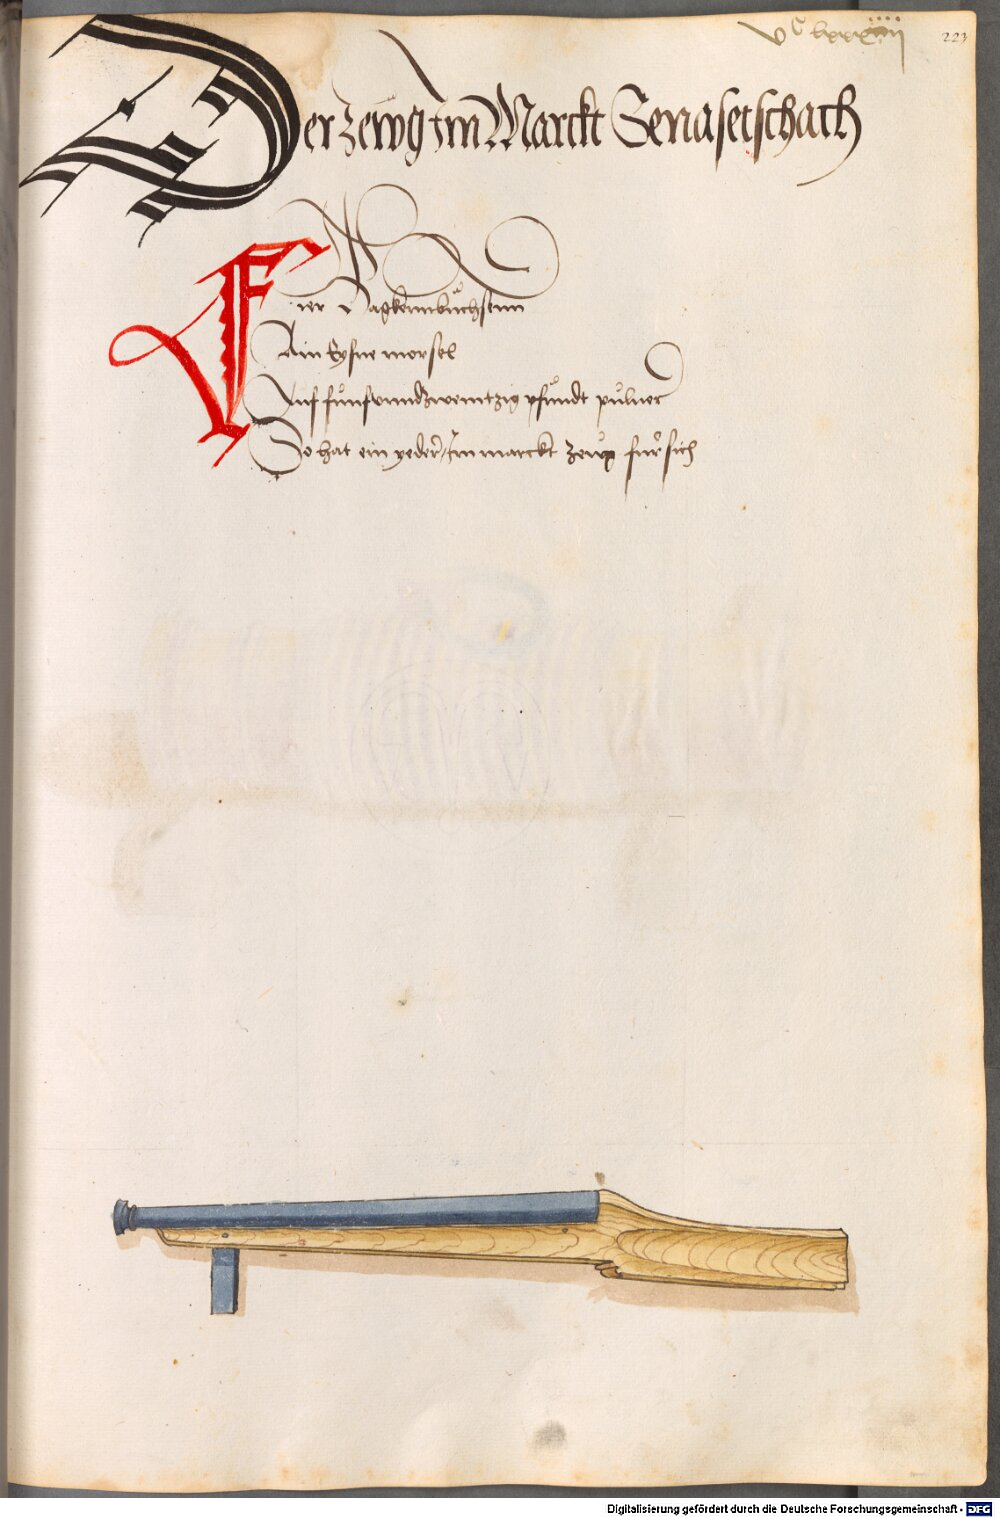 Vᶜ lxxxiiij
223
Der zewg Im Marckt Senasetschach
Fier Hagkennbüchsenn
Ain Eysne morsel
Auf fünfvnndzwenntzig pfundt puluer
So hat ein yeder Im marckt zewg für sich
Digitalisierung gefördert durch die Deutsche Forschungsgemeinschaft - DFG